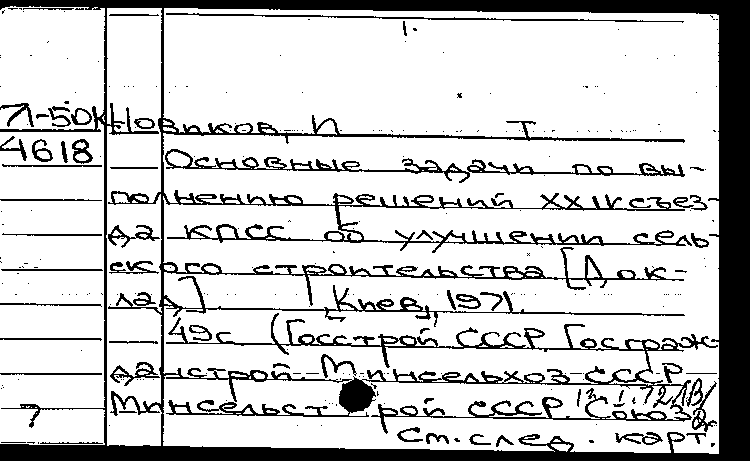 1.
Л-50К Новиков, И Т
4618 Основные задачи по вы-
полнению решений XXIV съез-
да КПСС об улучшении сель-
ского строительства [Док-
лад]. Киев, 1971.
49с (Госстрой СССР. Госграж-
данстрой. Минсельхоз СССР
Минсельстрой СССР. Союз
? См. след. карт.